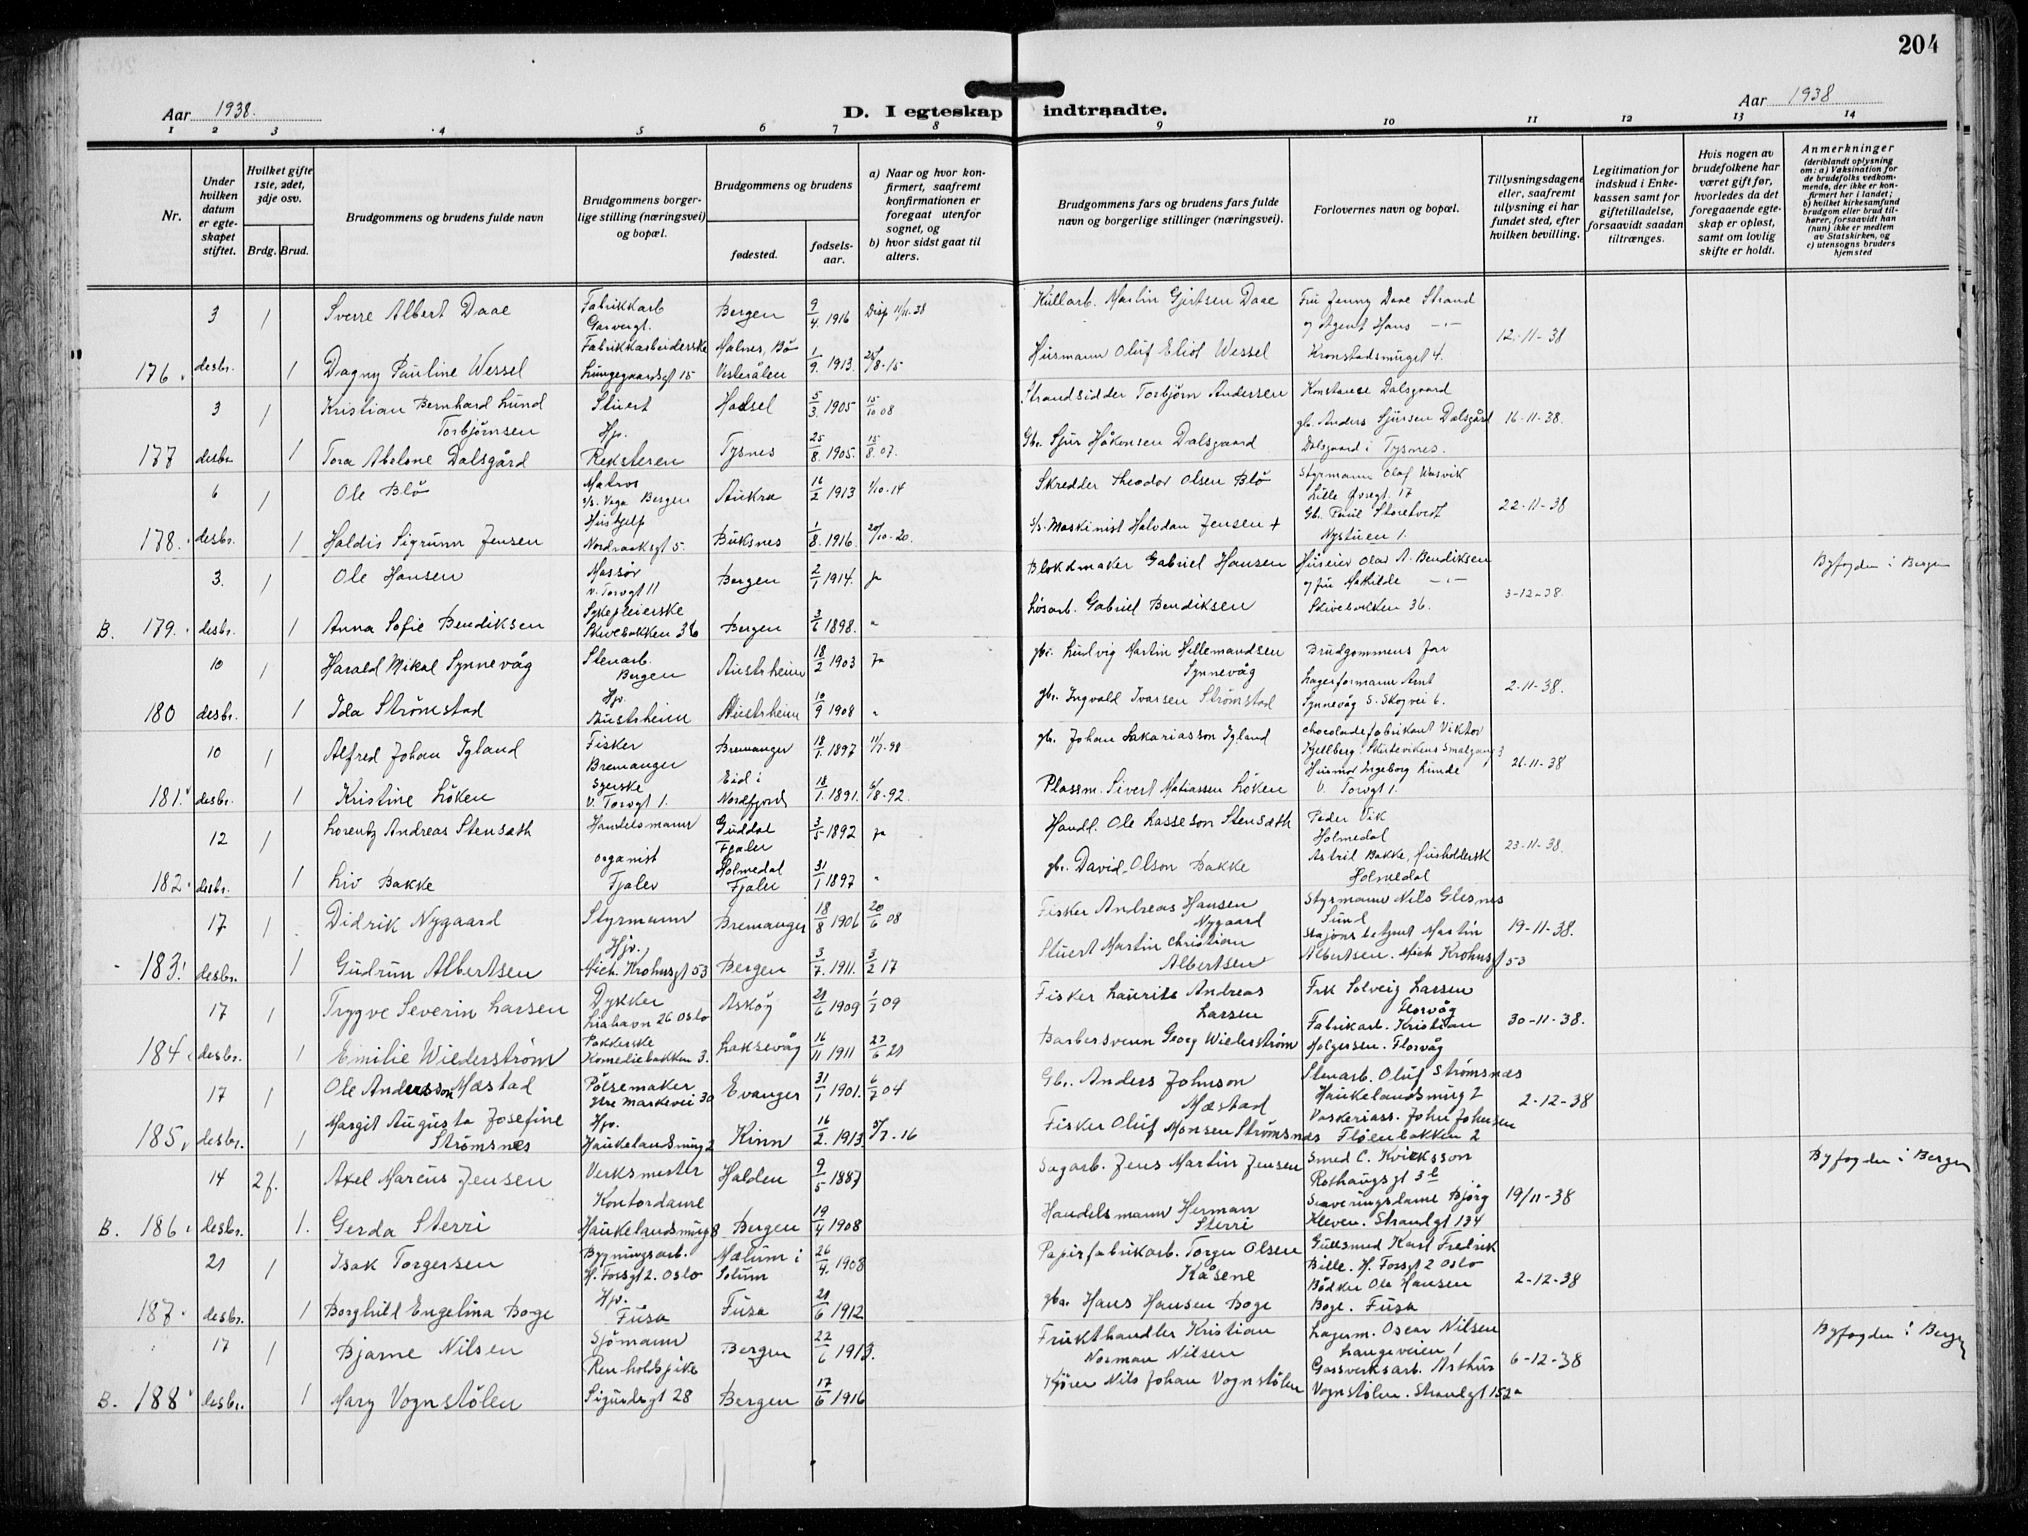 204
Aar 1938.
D. I egteskap indtraadte.
Aar 1938
1 2 3 4 5 6 7 8 9 10 11 12 13 14
Nr.
Under hvilken datum er egteskapet stiftet.
Hvilket gifte 1ste, 2det, 3dje osv.
Brdg. Brud.
Brudgommens og brudens fulde navn
Brudgommens borgerlige stilling (næringsvei) og bopæl.
Brudgommens og brudens
fødested.
fødselsaar.
a) Naar og hvor konfirmert, saafremt konfirmationen er foregaat utenfor sognet, og
b) hvor sidst gaat til alters.
Brudgommens fars og brudens fars fulde navn og borgerlige stillinger (næringsvei).
Forlovernes navn og bopæl.
Tillysningsdagene eller, saafremt tillysning ei har fundet sted, efter hvilken bevilling.
Legitimation for indskud i Enkekassen samt for giftetilladelse, forsaavidt saadan tiltrænges.
Hvis nogen av brudefolkene har været gift før, hvorledes da det foregaaende egteskap er opløst, samt om lovlig skifte er holdt.
Anmerkninger
(deriblandt oplysning om: a) Vaksination for de brudefolks vedkommende, der ikke er konfirmert her i landet; b) hvilket kirkesamfund brudgom eller brud tilhører, forsaavidt han (hun) ikke er medlem av Statskirken, og c) utensogns bruders hjemsted
3 1 Sverre Albert Daae Fabrikkarb Garvergt. Bergen 9/4 1916 Disp 11/11-38 Martin Gjertsen Daae Fru Jenny Daae Strand og Agent Hans -"-
176. desbr. 1 Dagny Pauline Wessel Fabrikkarbeiderske Lungegaardsgt 15 Malnes, Bø Vesterålen 1/9 1913. 25/8-15 Husmann Oluf Eliot Wessel Kronstadsmuget 4. 12-11-38
3 1 Kristian Bernhard Lund Torbjørnsen Stuert Hadsel 5/3 1905 15/10 08 Strandsidder Torbjørn Andersen Konstanse Dalsgaard
177 desbr. 1 Tora Abelone Dalsgård Hjv. Reksteren Tysnes 25/8 1905. 15/8 07. Gbr. Sjur Håkonsen Dalsgaard gb. Anders Sjursen Dalsgård Dalsgaard i Tysnes. 16-11-38.
6 1 Ole Blø Matros s/s. Vaga Bergen Aukra 16/2 1913 1/10-14 Skredder Theodor Olsen Blø Styrmann Olaf Wasvik Lille Øvregt. 17
178. desbr. 1 Haldis Sigrunn Jensen Hushjelp Nordraaksgt 5. Buksnes 1/8 1916. 20/10-20. Maskinist Halvdan Jensen + Gb. Paul Storetvedt Nystuen 1. 22-11-38
3. 1 Ole Hansen Massør v. Torvgt 11 Bergen 2/1 1914. ja Blokkmaker Gabriel Hansen Huseier Olav A. Bendiksen og fru Mathilde -"- Byfogden i Bergen
B. 179. desbr. 1 Anna Sofie Bendiksen Sykepleierske Skivebakken 36 Bergen 3/6 1898. " Løsarb. Gabriel Bendiksen Skivebakken 36. 3-12-38.
10 1 Harald Mikal Synnevåg Stenarb. Bergen Austrheim 18/2 1903 ja gbr. Ludvig Martin Hillemandsen Synnevåg Brudgommens far
180 desbr. 1 Ida Strømstad Hjv. Austrheim Austrheim 10/9 1908 " gbr. Ingvald Ivarsen Strømstad Lagerformann Arnt Synnevåg S. Skogvei 6. 2-11-38.
10 1 Alfred Johan Igland Fisker Bremanger Bremanger 18/1 1897 11/7-98 gb. Johan Sakariasson Igland Chocoladefabrikant Viktor Kjellberg. Skutevikens Smalgang 3
181. desbr. 1 Kristine Løken Syerske V. Torvgt 1. Eid i Nordfjord 18/1 1891. 6/8-92. Plassm. Sivert Matiassen Løken Husmor Ingeborg Lunde V. Torvgt 1. 26-11-38
12 1 Lorentz Andreas Stensæth Handelsmann Guddal Fjaler 3/5 1892 ja Handl. Ole Lasseson Stensæth Peder Vik Holmedal
182. desbr. 1 Liv Bakke Organist Fjaler Holmedal Fjaler 31/1 1897 " gb. David Olson Bakke Astrid Bakke, Husholdersk Holmedal 23-11-38.
17 1 Didrik Nygaard Styrmann Bremanger 18/8 1906 20/6 08 Fisker Andreas Hansen Nygaard Styrmann Nils Glesnes Sund
183. desbr. 1 Gudrun Albertsen Hjv. Mich. Krohnsgt 53 Bergen 3/7 1911. 3/2 17 Stuert Martin Christian Albertsen Stasjonsbetjent Martin Albertsen. Mich Krohnsgt 53 19-11-38.
17 1 Trygve Severin Larsen Dykker Liahavn 26 Oslo Askøy 21/6 1909 1/7 09 Fisker Laurits Andreas Larsen Frk Solveig Larsen Florvåg
184. desbr. 1 Emilie Wiederstrøm Pakkerske Komediebakken 3. Laksevåg 16/11 1911 27/6 21 Barbersvenn Georg Wiederstrøm Fabrikarb. Kristian Holgersen. Florvåg 30-11-38.
17 1 Ole Andersson Mæstad Pølsemaker Nye Markevei 30 Evanger 31/1 1901. 6/7 04 Gb. Anders Johnson Mæstad Stenarb. Oluf Strømsnes Haukelandsmug 2
185. desbr. 1 Margit Augusta Josefine Strømsnes Hjv. Haukelandsmug 2 Kinn 16/2. 1913 Fisker Oluf Monsen Strømsnes Vaskeriass. John Johnsen Fløenbakken 2 2-12-38
14 2 f. Axel Marcus Jensen Verksmester Halden 9/5 1887 Sagarb. Jens Martin Jensen Smed C. Kvicksson Rothaugsgt 3 b Byfogden i Bergen
B. 186. desbr. 1. Gerda Sterri Kontordame Haukelandsmug 8 Bergen 19/4 1908 Handelsmann Herman Sterri Bjørg Kleven. Strandgt 134 19/11-38
21 1 Isak Torgersen Bygningsarb. H. Forsgt 2. Oslo Mælum i Solum 26/4. 1908 Papirfabrikarb. Torger Olsen Kåsene Gullsmed Karl Fredrik Bille. H. Forsgt 2 Oslo
187. desbr. 1 Borghild Engelina Boge Hjv. Fusa Fusa 21/6 1912 gba. Hans Hansen Boge Bødker Ole Hansen Boge. Fusa 2-12-38
17 1 Bjarne Nilsen Sjømann Bergen 22/6 1913. Frukthandler Kristian Norman Nilsen Lagerm. Oscar Nilsen Langeveien 1 Byfogden i Bergen
B. 188. desbr. 1 Mary Vognstølen Renholdspike Sigurdsgt 28 Bergen 17/6 1916 Kjører Nils Johan Vognstølen Gassverksarb. Arthur Vognstølen. Strandgt 152a 6-12-38